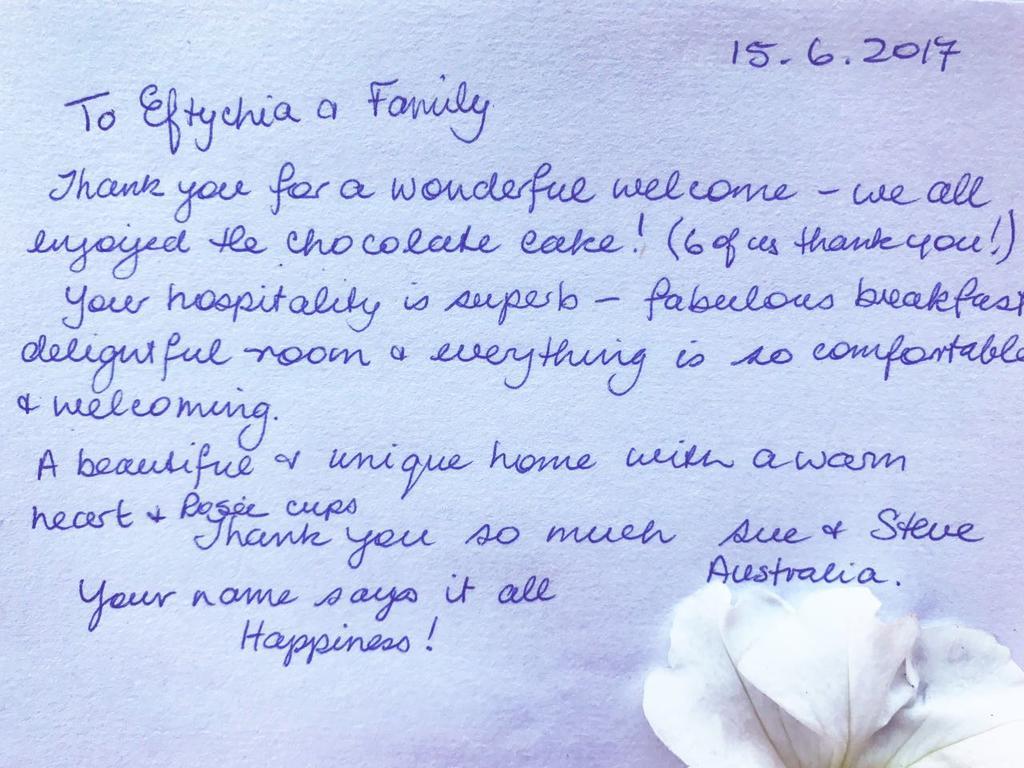 15.6.2017
To Eftychia & Family
Thank you for a wonderful welcome – we all
enjoyed the chocolate cake! (6 of us thank you!)
Your hospitality is superb – fabulous breakfast
delightful room & everything is so comfortable
& welcoming.
A beautiful & unique home with a warm
heart & cups
Thank you so much Sue & Steve
Australia.
Your name says it all
Happiness!